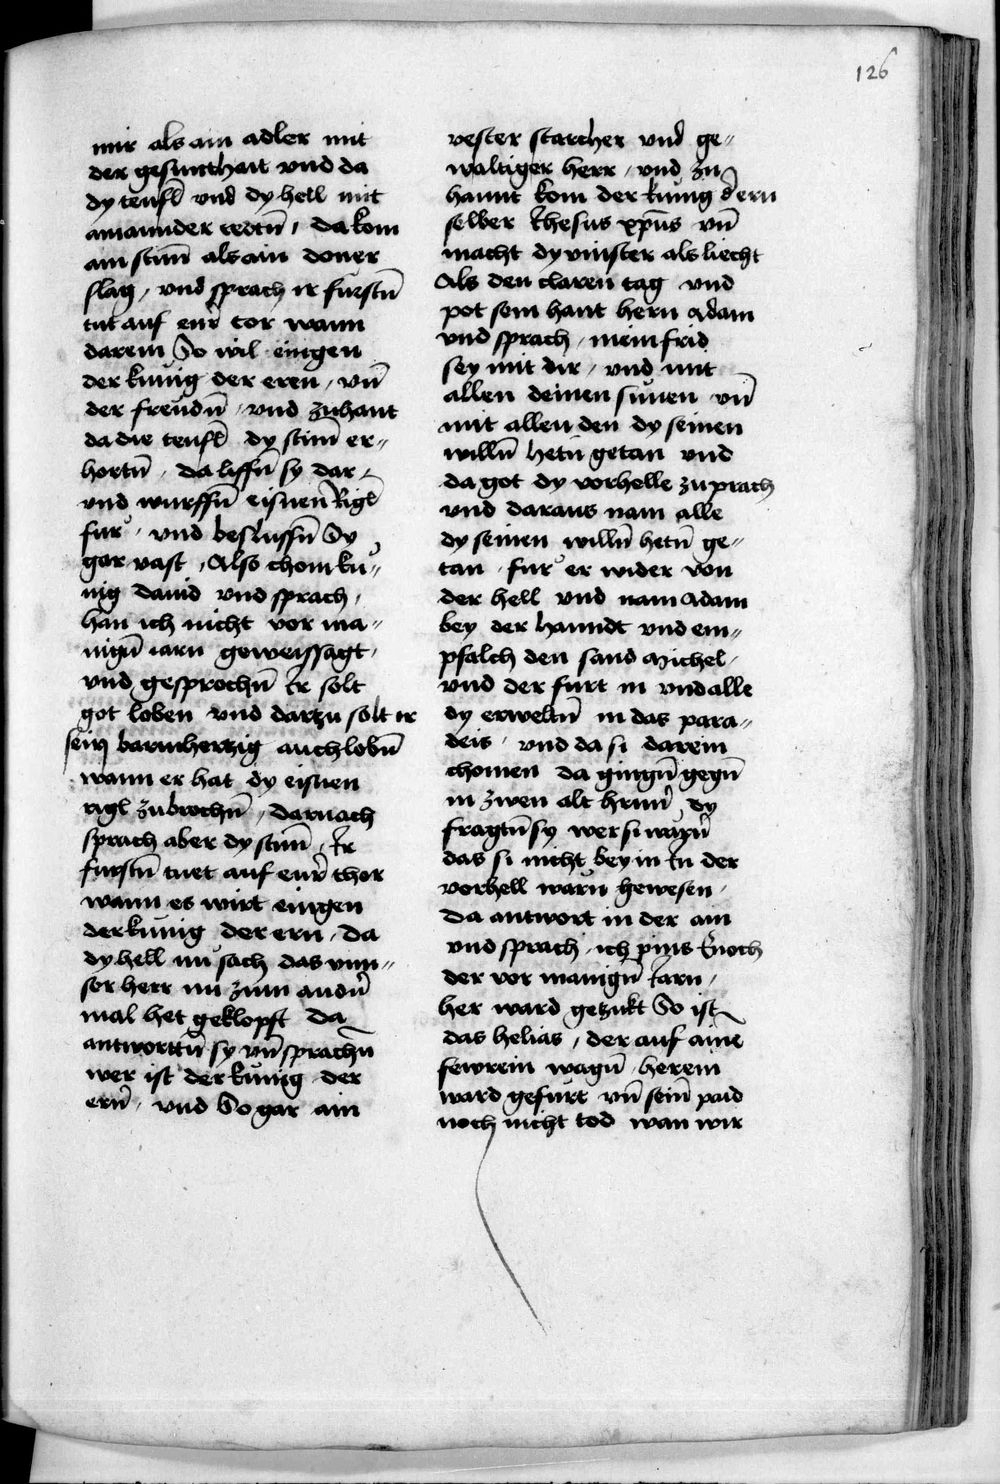 126
mir als ain adler mit
der gesunthait vnd da
dy teufl̄ vnd dy hell mit
amainder redtn̄ / da kom
ain stim̄ als ain doner
slag / vnd sprach ir furstn̄
tut auf eur̄ tor wann
darein So wil eingen
der kunig der eren / vn̄
der freudn̄ / vnd zuhant
da die teufl̄ dy stim̄ er〃
hortn̄ / da liffn̄ sy dar /
vnd wurffn̄ eisnen Rigl̄
fur / vnd beslussn̄ Sy
gar vast / Also chom ku〃
nig dauid vnd sprach /
han ich nicht vor ma〃
nign̄ iarn geweissagt /
vnd gesprochn̄ Ir solt
got loben vnd dartzu solt ir
sein barmhertzig auch lobn̄
wann er hat dy eisnen
rigl zubrochn̄ / darnach
sprach aber dy stim̄ / Ir
furstn̄ tuet auf eur̄ thor
wann es wirt eingen
der kunig der ern / Da
dy hell nu sach das vnn〃
ser herr nu zum andn̄
mal het geklopft Da
antworttn̄ sy vn̄ sprachn̄
wer ist der kunig der
ern̄ / vnd So gar ain
vester starcher vnd ge〃
waltiger herr / vnd zu
hannt kom der kunig d̄ ern
selber Ihesus xp̄us vn̄
macht dy vinster als liecht
Als den claren tag vnd
pot sein hant hern Adam
vnd sprach / mein frid
sey mit dir / vnd mit
allen deinen sunen vn̄
mit allen den dy seinen
willn̄ hetn̄ getan vnd
da got dy vorhelle zuprach
vnd daraus nam alle
dy seinen willn̄ hetn̄ ge〃
tan / fur er wider von
der hell vnd nam Adam
bey der hanndt vnd em〃
pfalch den sand Michel /
vnd der furt in vnd alle
dy erweltn̄ in das para〃
deis / vnd da si darein
chomen da gingn̄ gegn̄
in zwen alt hrnn̄ dy
fragtn̄ sy wer si warn̄
das si nicht bey in In der
vorhell warn̄ gewesen /
Da antwort in der ain
vnd sprach / ich pins Enoch
der vor manign̄ Iarn /
her ward getzukt So ist
das helias / der auf aine̅
fewrein wagn̄ herein
ward gefurt vn̄ sein̄ paid
noch nicht tod wan wir